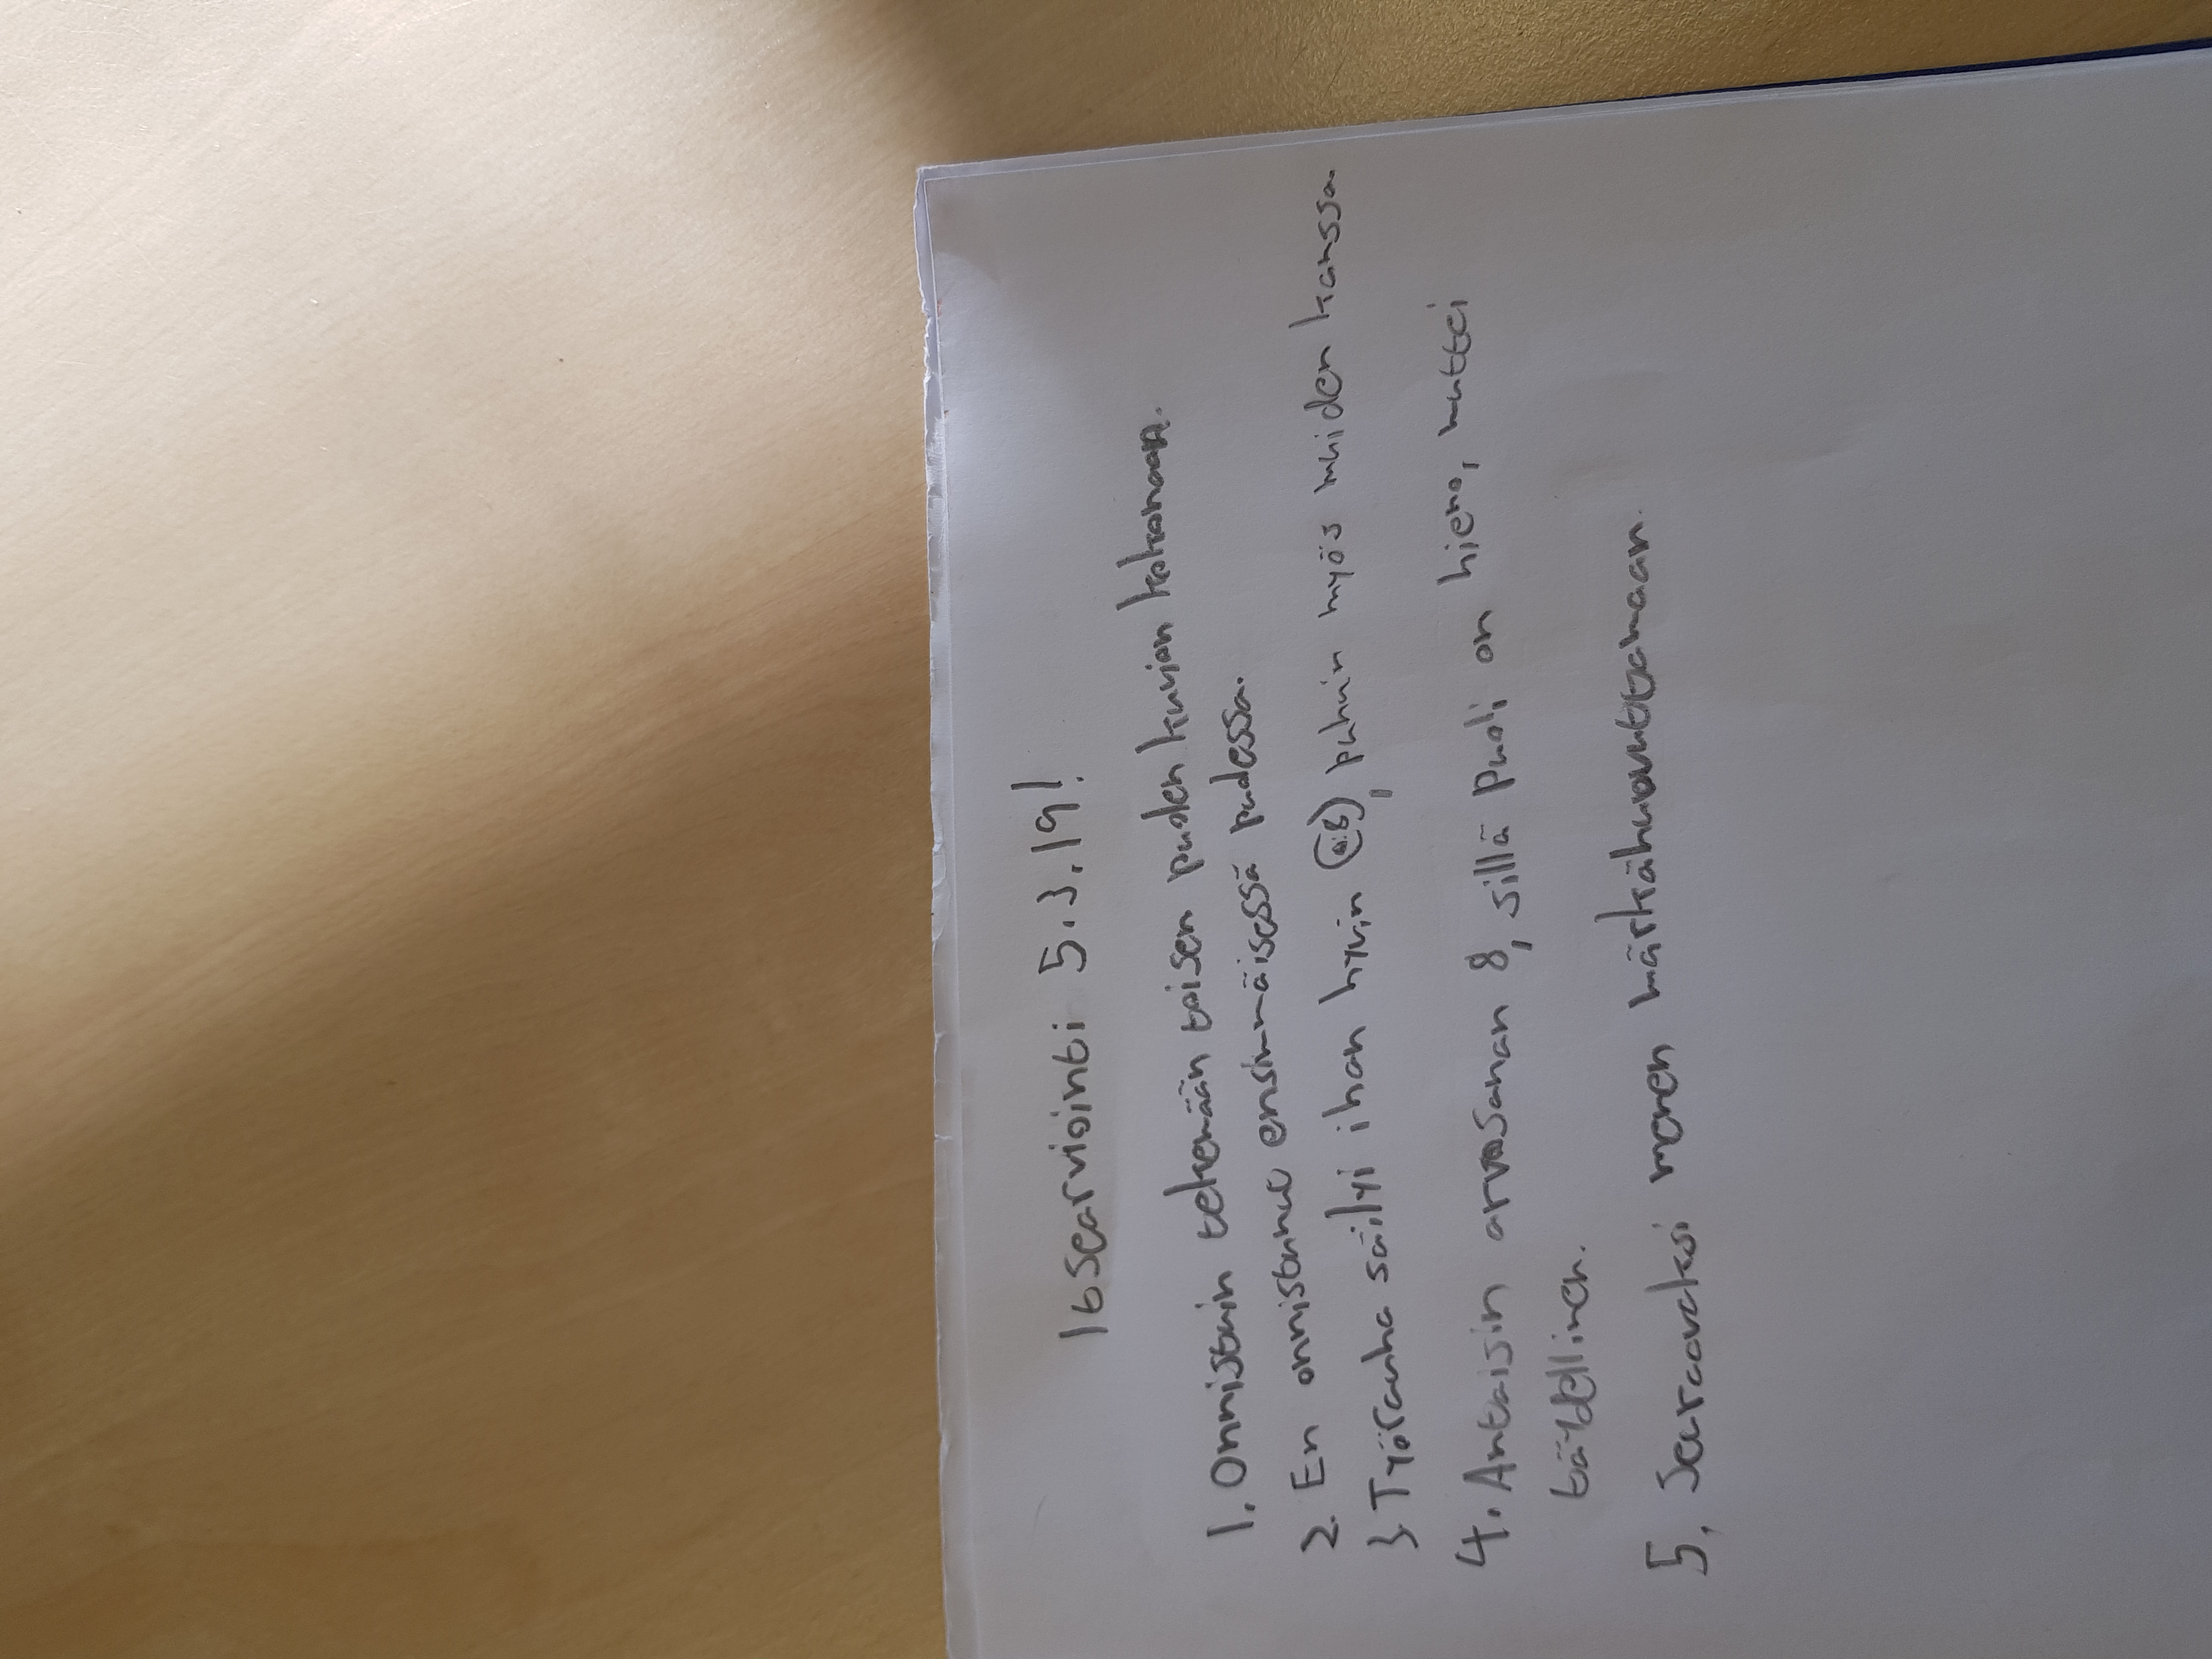 Itsearviointi 5.3.19!
1. Onnistuin tekemään toisen puolen kunion kokonaan.
2. En onnistunut ensimmäisessä pudessa.
3. Työrauha säilyi ihan hyvin, puhuin myös muiden kanssa.
4. Antaisin arvosanan 8, sillä puoli on hieno, muttei
täydellinen.
5. Seuraavaksi menen märkähuovuttamaan.